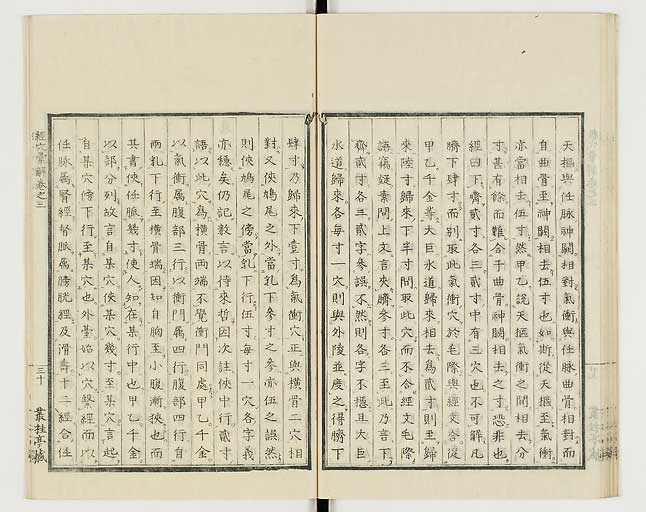 天樞與任脉神闕相對氣衝與任脉曲骨相對而
自曲骨至神闕相去伍寸也如斯從天樞至氣衝
亦當相去伍寸然甲乙說天樞氣衝之間相去分
寸甚有餘而難合于曲骨神闕相去之寸恐非也
經曰下齊貳寸各三貳寸中有三穴也不可解凡
臍下肆寸而別取此氣衝穴於毛際與經文合從
甲乙千金等大巨水道歸來相去爲貳寸則至歸
來陸寸歸來下半寸間取此穴而不合經文毛際
語竊疑素問上文言夾臍參寸各三至此乃言下
齊貳寸各三貳字參誤不然則各字不穩且大巨
水道歸來各每寸一穴則與外陵並度之得臍下
肆寸乃歸來下壹寸爲氣衝穴正與橫骨二穴相
對又俠鳩尾之外當乳下參寸之參亦伍之誤然
則俠鳩尾之傍當乳下行伍寸每寸一穴各字義
亦穩矣仍記數言以待來哲因次註俠中行貳寸
語以此穴爲橫骨兩端不覺衝門同處甲乙千金
以氣衝屬腹部三行以衝門屬四行腹部四行自
兩乳下行至橫骨端因知自胸至小腹漸狹也而
其書俠任脉幾寸使人知在某行中也甲乙千金
以部分列故言自某穴俠某穴幾寸至某穴言起
自某穴傍下行至某穴也外臺始以穴繫經而以
任脉屬腎經督脉屬膀胱經及滑壽十二經合任
經穴彙解卷之三
三十
叢桂亭藏